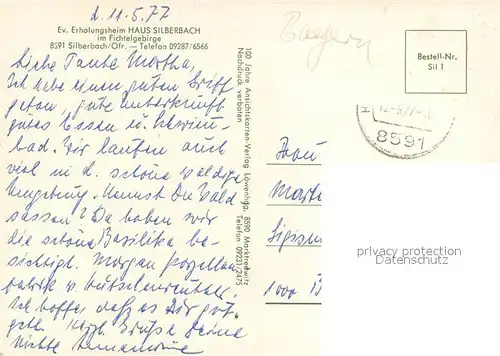 d. 11.5.77
Ev. Erholungsheim HAUS SILBERBACH
im Fichtelgebirge
8591 Silberbach/Ofr. — Telefon 09287/6566
Liebe Tante Martha,
Ich habe einen guten Griff
getan, gute Unterkunft
gutes Essen u. Schwimm-
bad. Wir laufen auch
viel in d. schöne waldige
Umgebung. Kennst Du Wald
sassen? Da haben wir
die schöne Basilika be-
sichtigt. Morgen Porzellan
fabrik v. Hutschenreuther.
Ich hoffe, daß es Dir gut
geht. Herzl. Grüße Deine
Nichte Annemarie
100 Jahre Ansichtskarten-Verlag Löwenhag, 8590 Marktredwitz
Nachdruck verboten Telefon 09231/2475
Bayern
Bestell-Nr.
Sil 1
8591
Frau
Marth
Sigism
1000
privacy protection
Datenschutz